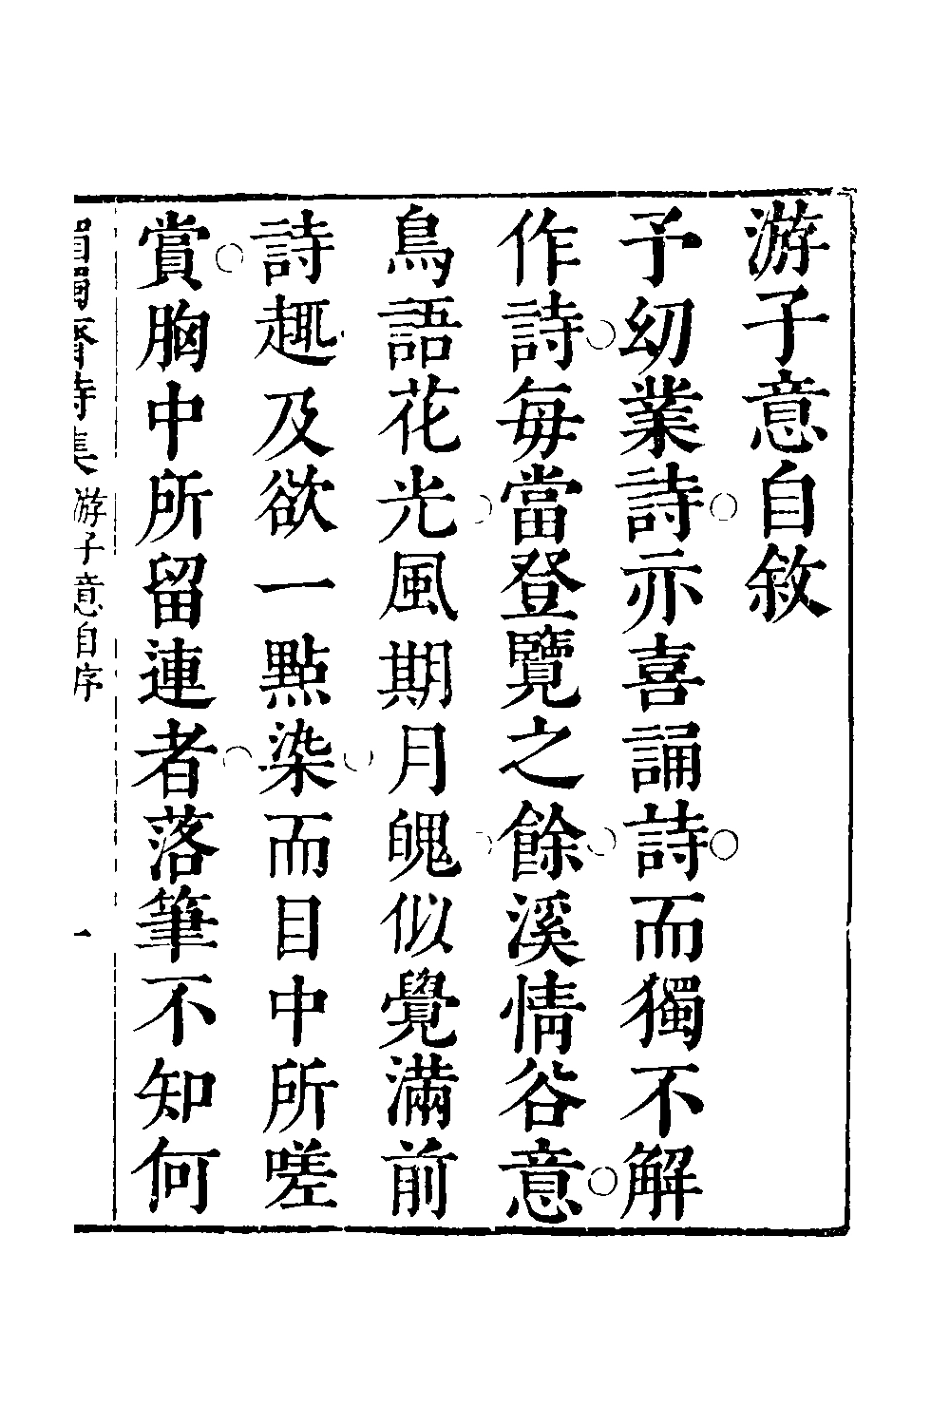 游子意自敘
予幼業詩亦喜誦詩而獨不解
作詩每當登覽之餘溪情谷意
鳥語花光風期月魄似覺滿前
詩趣及欲一點染而目中所嗟
賞胸中所留連者落筆不知何
獨齋詩集 游子意自序 一